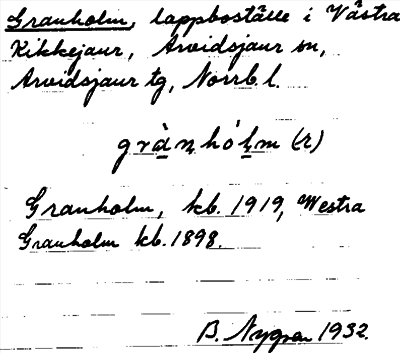 Granholm, lappboställe i Västra
Kikkejaur, Arvidsjaur sn,
Arvidsjaur tg, Norrb. l.
grànhólm (r)
Granholm, kb. 1919, Westra
Granholm kb. 1898.
B. Nygren 1932.